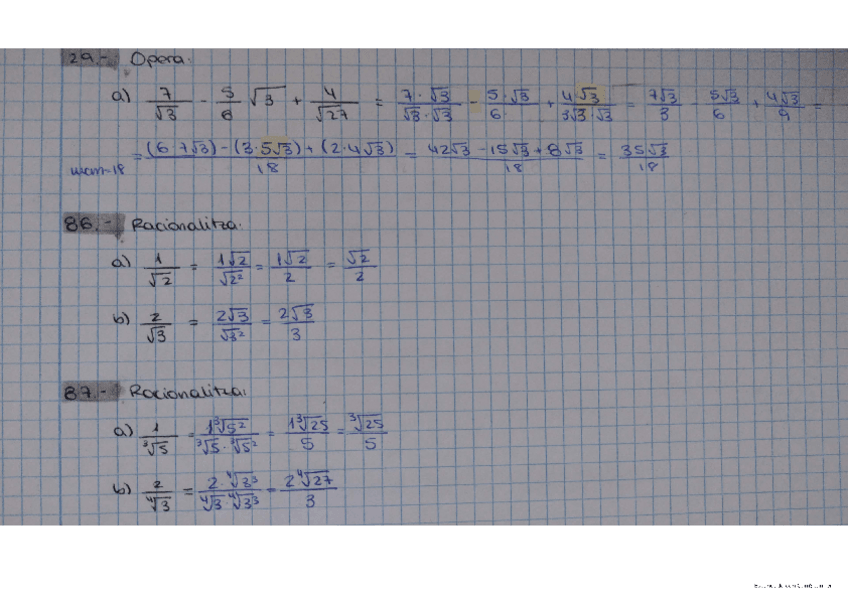 29.- Opera:
a) 7/√3 - 5/6 √3 + 4/√27 = 7·√3/√3·√3 - 5·√3/6 + 4√3/3√3·√3 = 7√3/3 - 5√3/6 + 4√3/9 =
mcm=18 = (6·7√3)-(3·5√3)+(2·4√3)/18 = 42√3-15√3+8√3/18 = 35√3/18
86.- Racionalitza:
a) 1/√2 = 1√2/√2² = 1√2/2 = √2/2
b) 2/√3 = 2√3/√3² = 2√3/3
87.- Racionalitza:
a) 1/³√5 = 1³√5²/³√5·³√5² = 1³√25/5 = ³√25/5
b) 2/⁴√3 = 2·⁴√3³/⁴√3·⁴√3³ = 2⁴√27/3